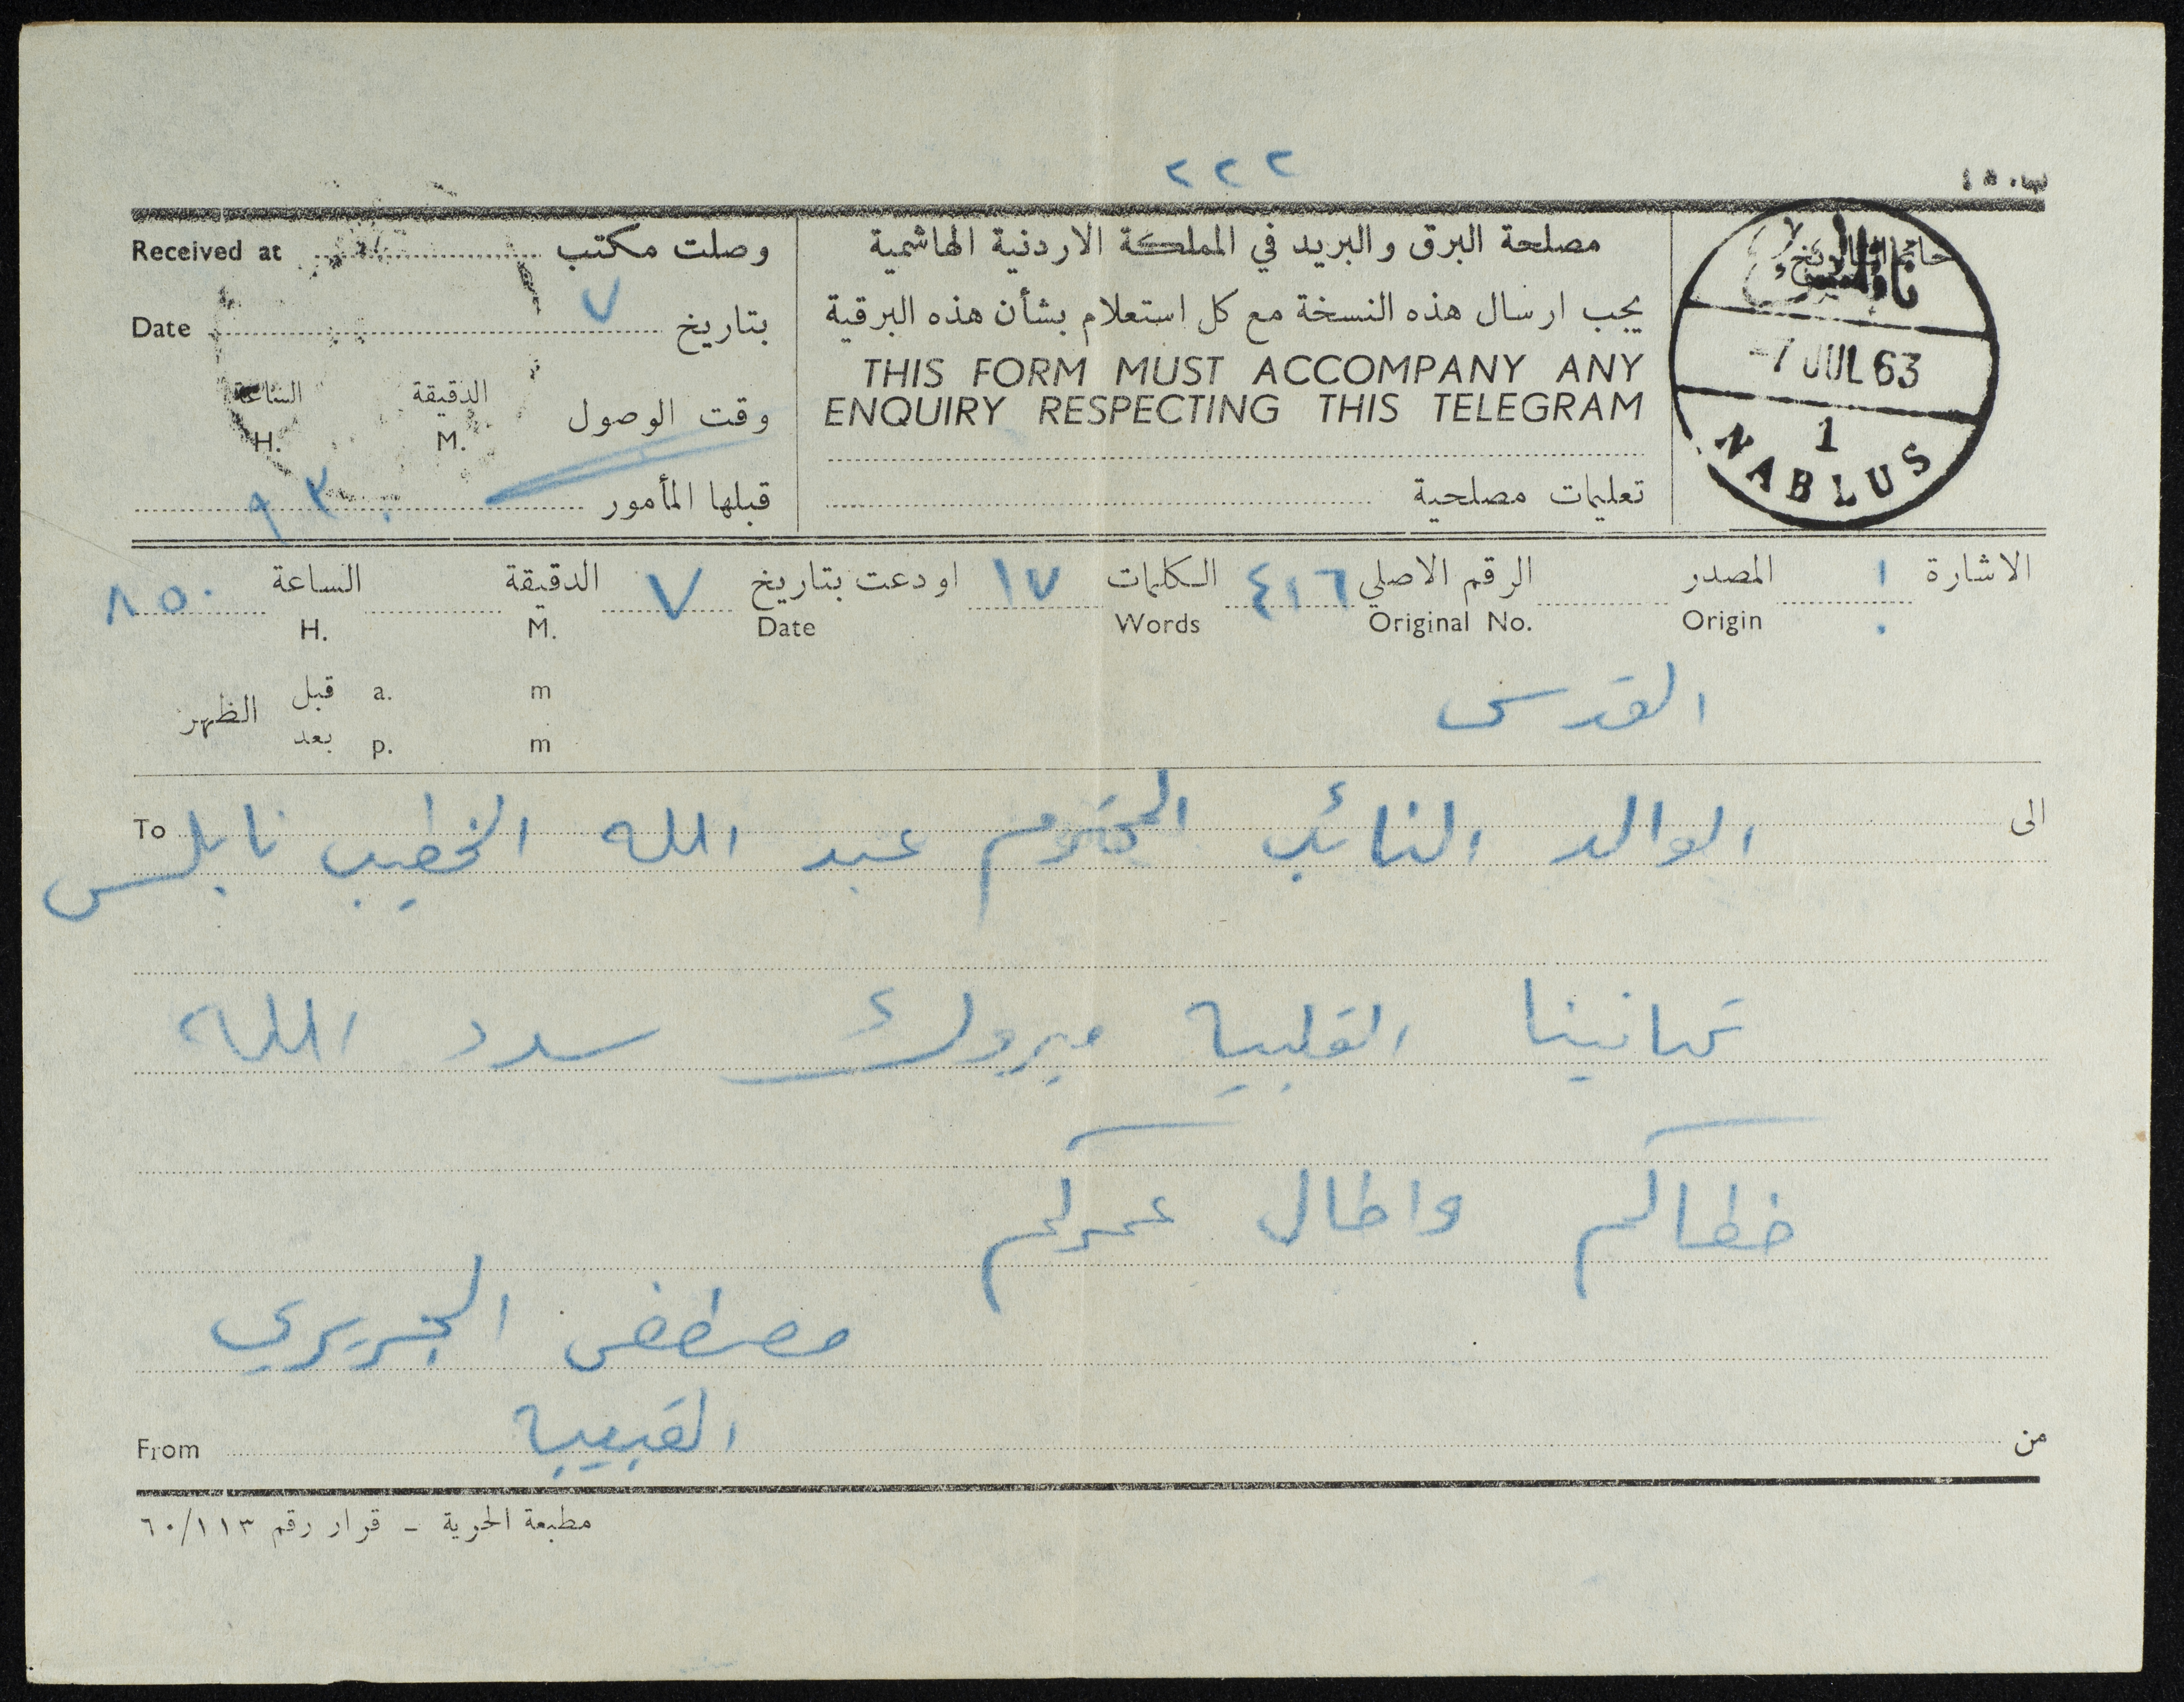 ٢٢٢
Received at وصلت مكتب
مصلحة البرق والبريد في المملكة الاردنية الهاشمية
Date بتاريخ ٧
يجب ارسال هذه النسخة مع كل استعلام بشأن هذه البرقية
THIS FORM MUST ACCOMPANY ANY
ENQUIRY RESPECTING THIS TELEGRAM
وقت الوصول الدقيقة الساعة
M. H.
تعليمات مصلحية
قبلها المأمور ٩ ٣٠
نابلس
-7 JUL 63
1
NABLUS
الاشارة المصدر الرقم الاصلي ٤١٦ الكلمات ١٧ اودعت بتاريخ ٧ الدقيقة الساعة ٨ ٥٠
Origin Original No. Words Date M. H.
القدس
قبل a. m
الظهر
بعد p. m
الى الوالد النائب المحترم عبد الله الخطيب نابلس To
تهانينا القلبية مبروك سدد الله
خطاكم واطال عمركم
مصطفى الجريري
القبيبة
من From
مطبعة الحرية - قرار رقم ٦٠/١١٣